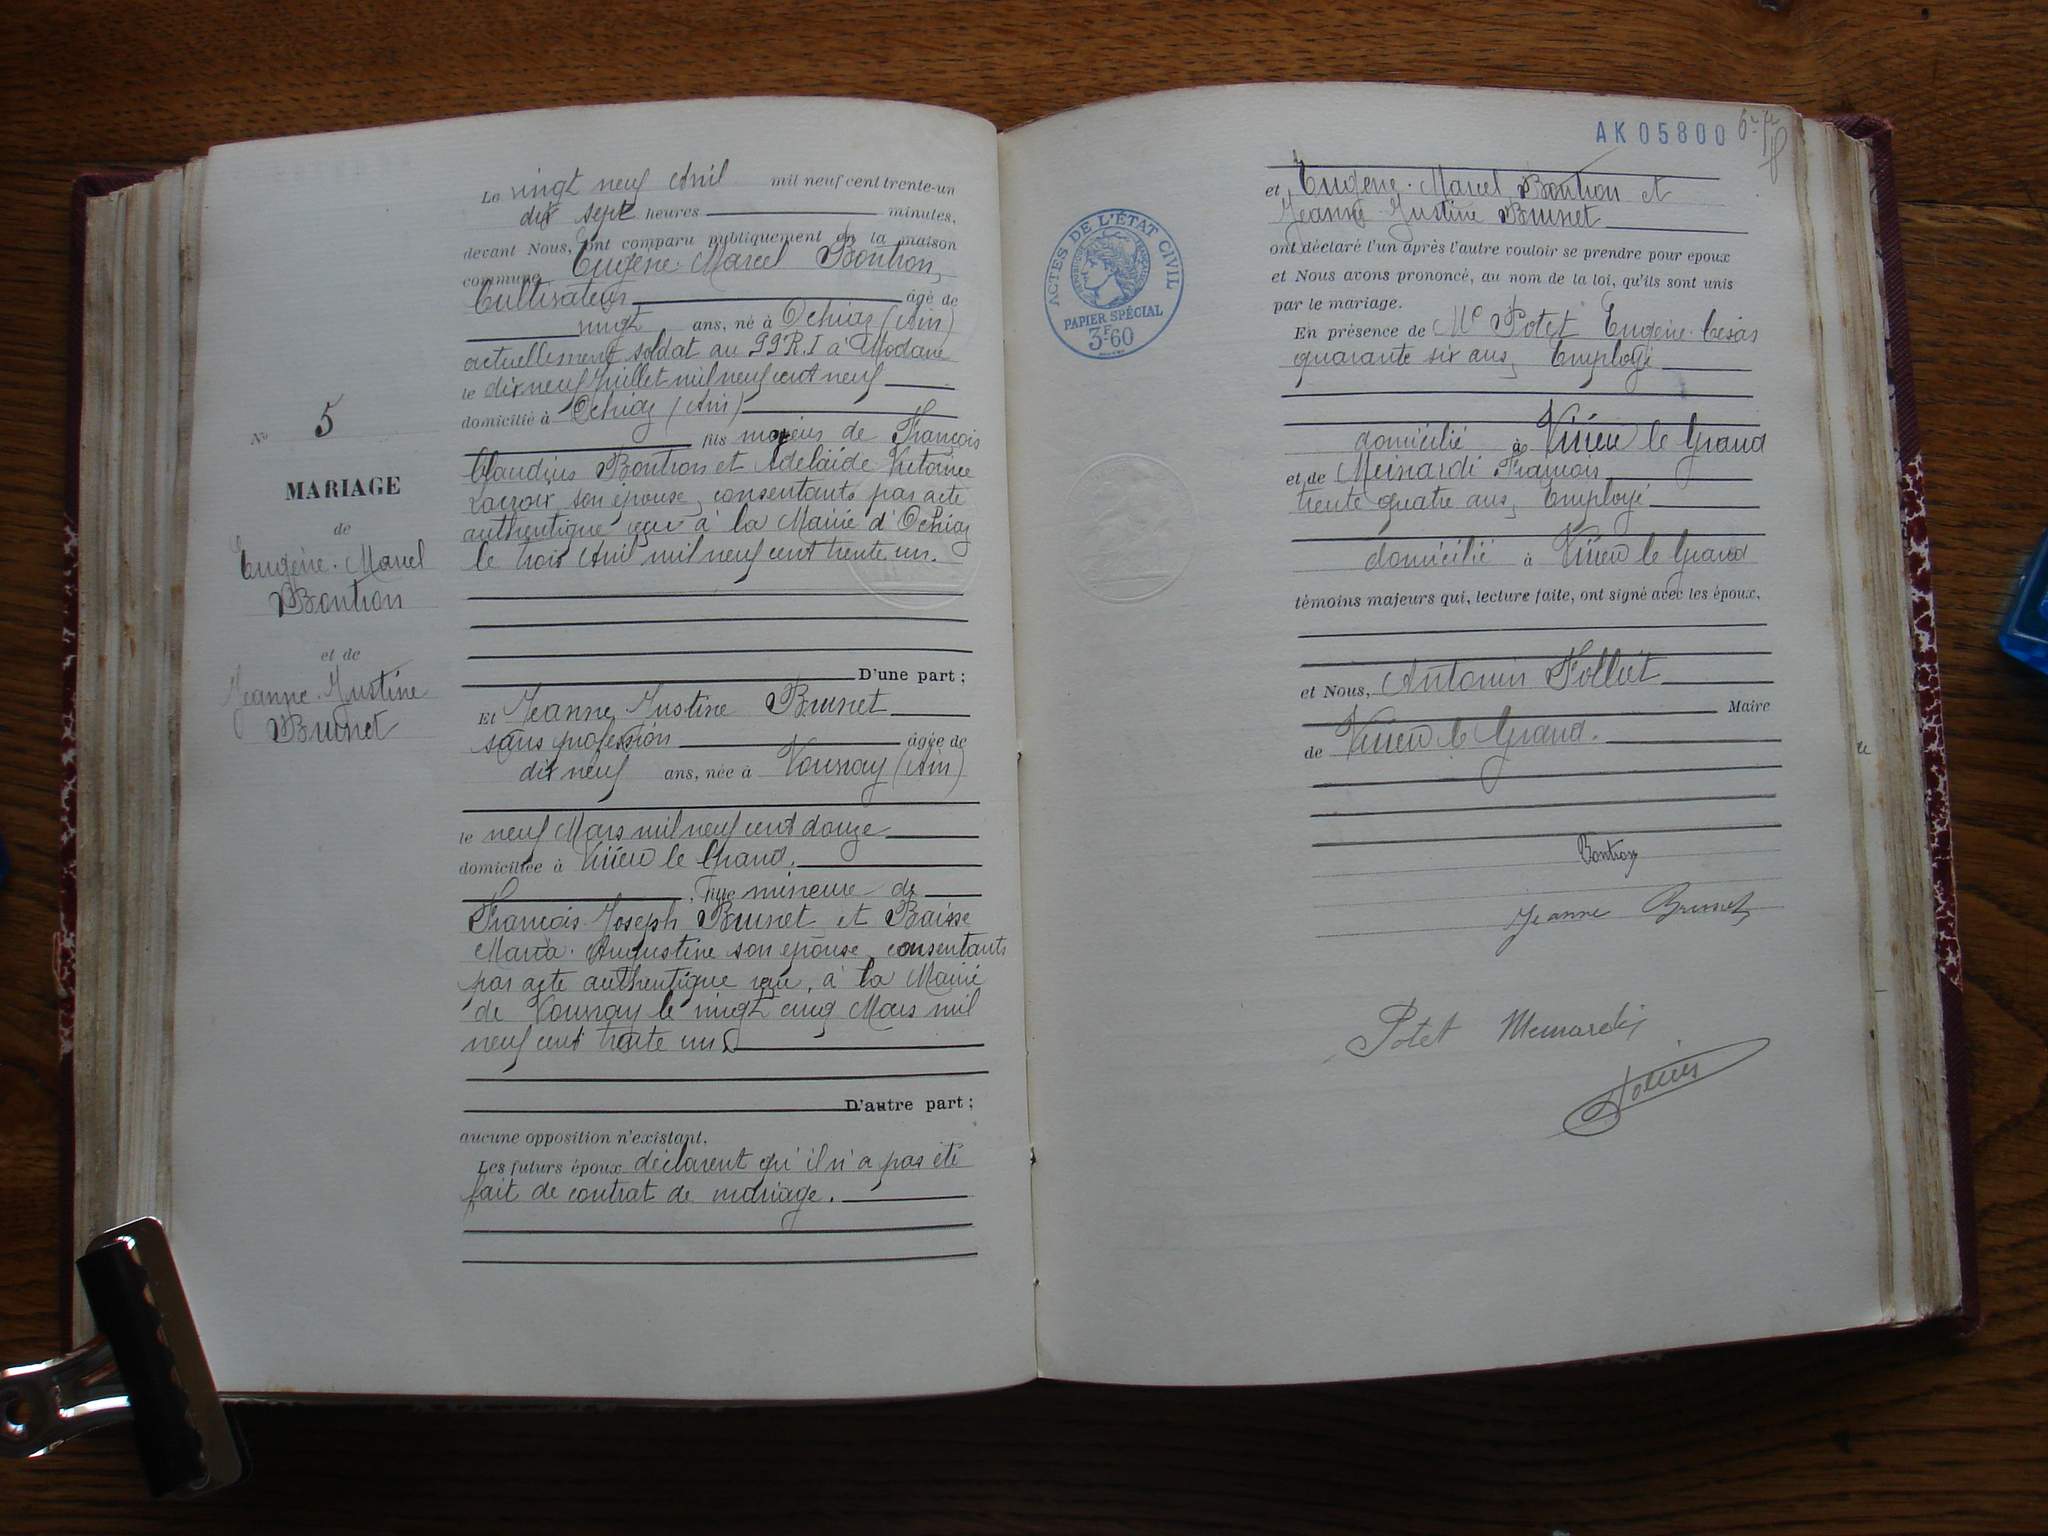 Le vingt neuf Avril mil neuf cent trente-un
dix sept heures minutes,
devant Nous, ont comparu publiquement en la maison
commune Eugène-Marcel Bontron,
Cultivateur âgé de
vingt ans, né à Ochiaz (Ain)
actuellement soldat au 99 R.I à Modane
le dix neuf Juillet mil neuf cent neuf
domicilié à Ochiaz (Ain)
fils majeur de François
Claudius Bontron et Adelaïde Victorine
Lacroix son épouse, consentants par acte
authentique reçu à la Mairie d'Ochiaz
le trois Avril mil neuf cent trente un.
D'une part ;
No 5
MARIAGE
de
Eugène-Marcel
Bontron
et de
Jeanne-Justine
Brunet
Et Jeanne Justine Brunet
sans profession âgée de
dix neuf ans, née à Vounay (Ain)
le neuf Mars mil neuf cent douze
domiciliée à Virieu le Grand.
fille mineure de
François-Joseph Brunet et Baisse
Maria-Augustine son épouse, consentants
par acte authentique reçu, à la Mairie
de Vounay le vingt cinq Mars mil
neuf cent trente un.
D'autre part ;
aucune opposition n'existant,
Les futurs époux déclarent qu'il n'a pas été
fait de contrat de mariage.
AK 05800
ACTES DE L'ÉTAT CIVIL
RÉPUBLIQUE FRANÇAISE
PAPIER SPÉCIAL
3F60
et Eugène-Marcel Bontron et
Jeanne-Justine Brunet
ont déclaré l'un après l'autre vouloir se prendre pour époux
et Nous avons prononcé, au nom de la loi, qu'ils sont unis
par le mariage.
En présence de Mr Potet Eugène-César
quarante six ans, Employé
domicilié à Virieu le Grand
et de Meinardi François
trente quatre ans, Employé
domicilié à Virieu le Grand
témoins majeurs qui, lecture faite, ont signé avec les époux,
et Nous, Antonin Folliet
Maire
de Virieu le Grand.
Bontron
Jeanne Brunet
Potet Meinardi